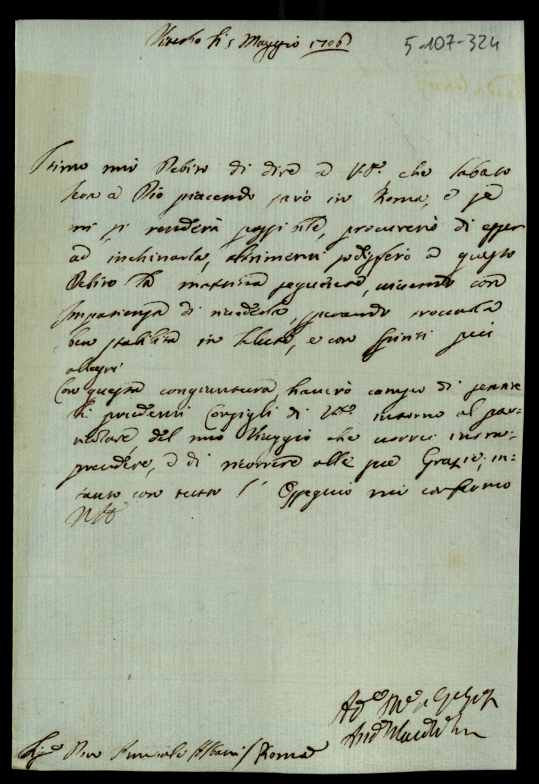 Viterbo li 5 Maggio 1706
5-107-324
Stimo mio debito di dire a V.S. che sabato
sera a Dio piacendo sarò in Roma, e se
mi si renderà possibile, procurerò di esser
ad inchinarla, altrimenti sodisferò a questo
debito la mattina seguente, vivendo con
impazienza di rivederla, sperando trovarla
ben stabilita in salute, e con spiriti più
allegri
Con questa congiuntura haverò campo di sentire
li prudenti Consigli di V.S. intorno al par-
ticolare del mio Viaggio che vorrei intra-
prendere, e di ricorrere alle sue Grazie, in-
tanto con tutto l' Ossequio mi confermo
Sig.r Annibale Albani / Roma